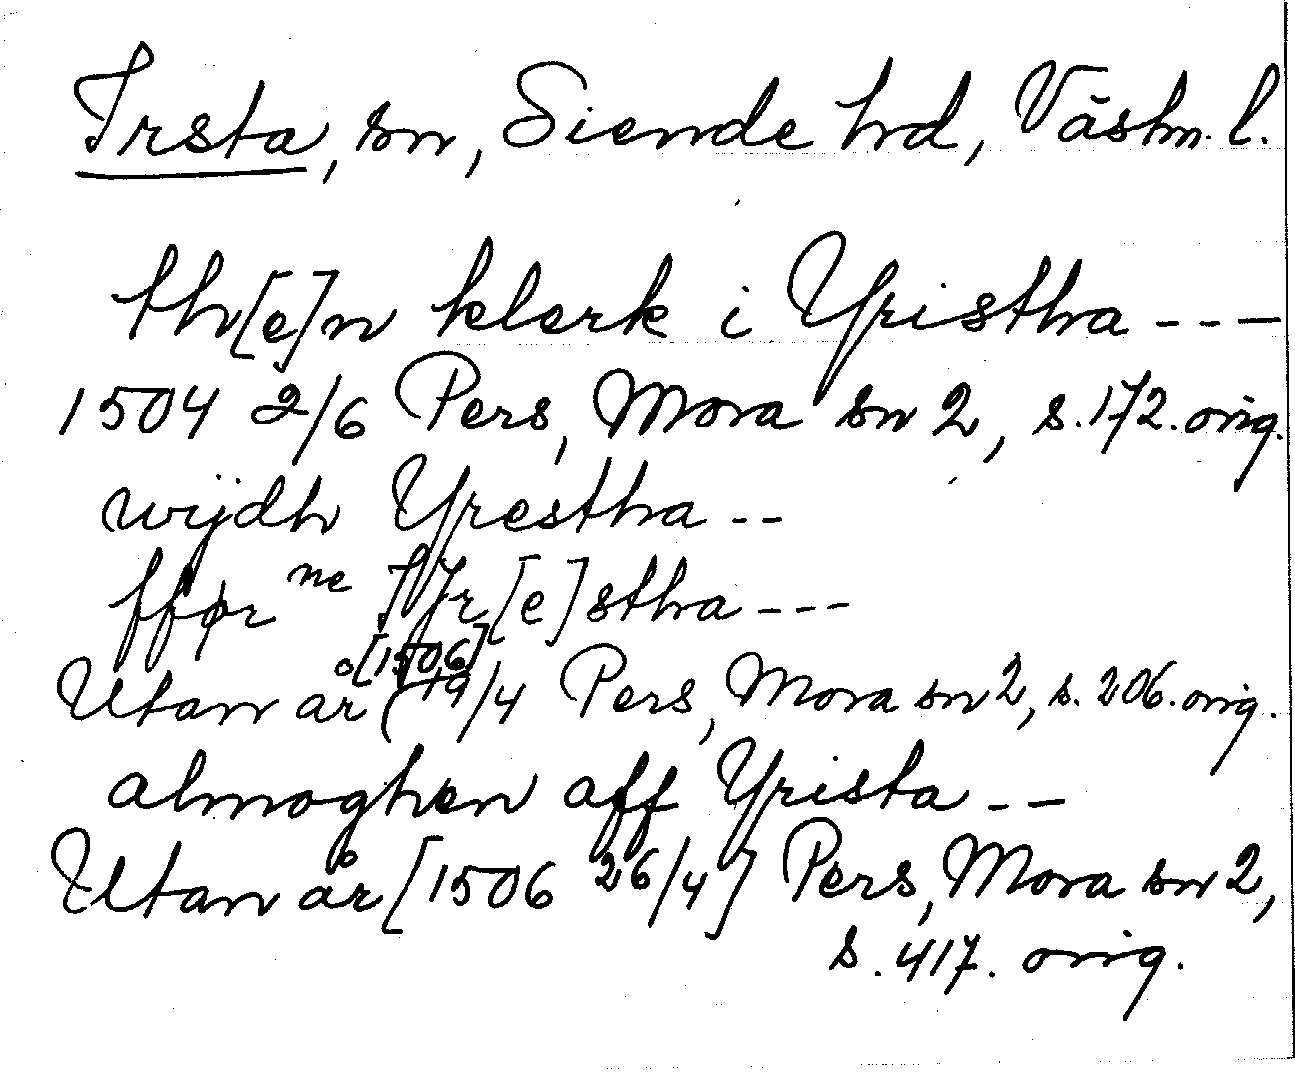 Irsta, sn, Siende hd, Västm. l.
th[e]n klerk i Yristha - - —
1504 2/6 Pers, Mora sn 2, s. 172. orig.
wijdh Yrestha - -
fför ne Yr[e]stha - - -
Utan år [1506] 19/4 Pers, Mora sn 2, s. 206. orig.
almoghen aff Yrista - —
Utan år [1506 26/4] Pers, Mora sn 2,
s. 417. orig.